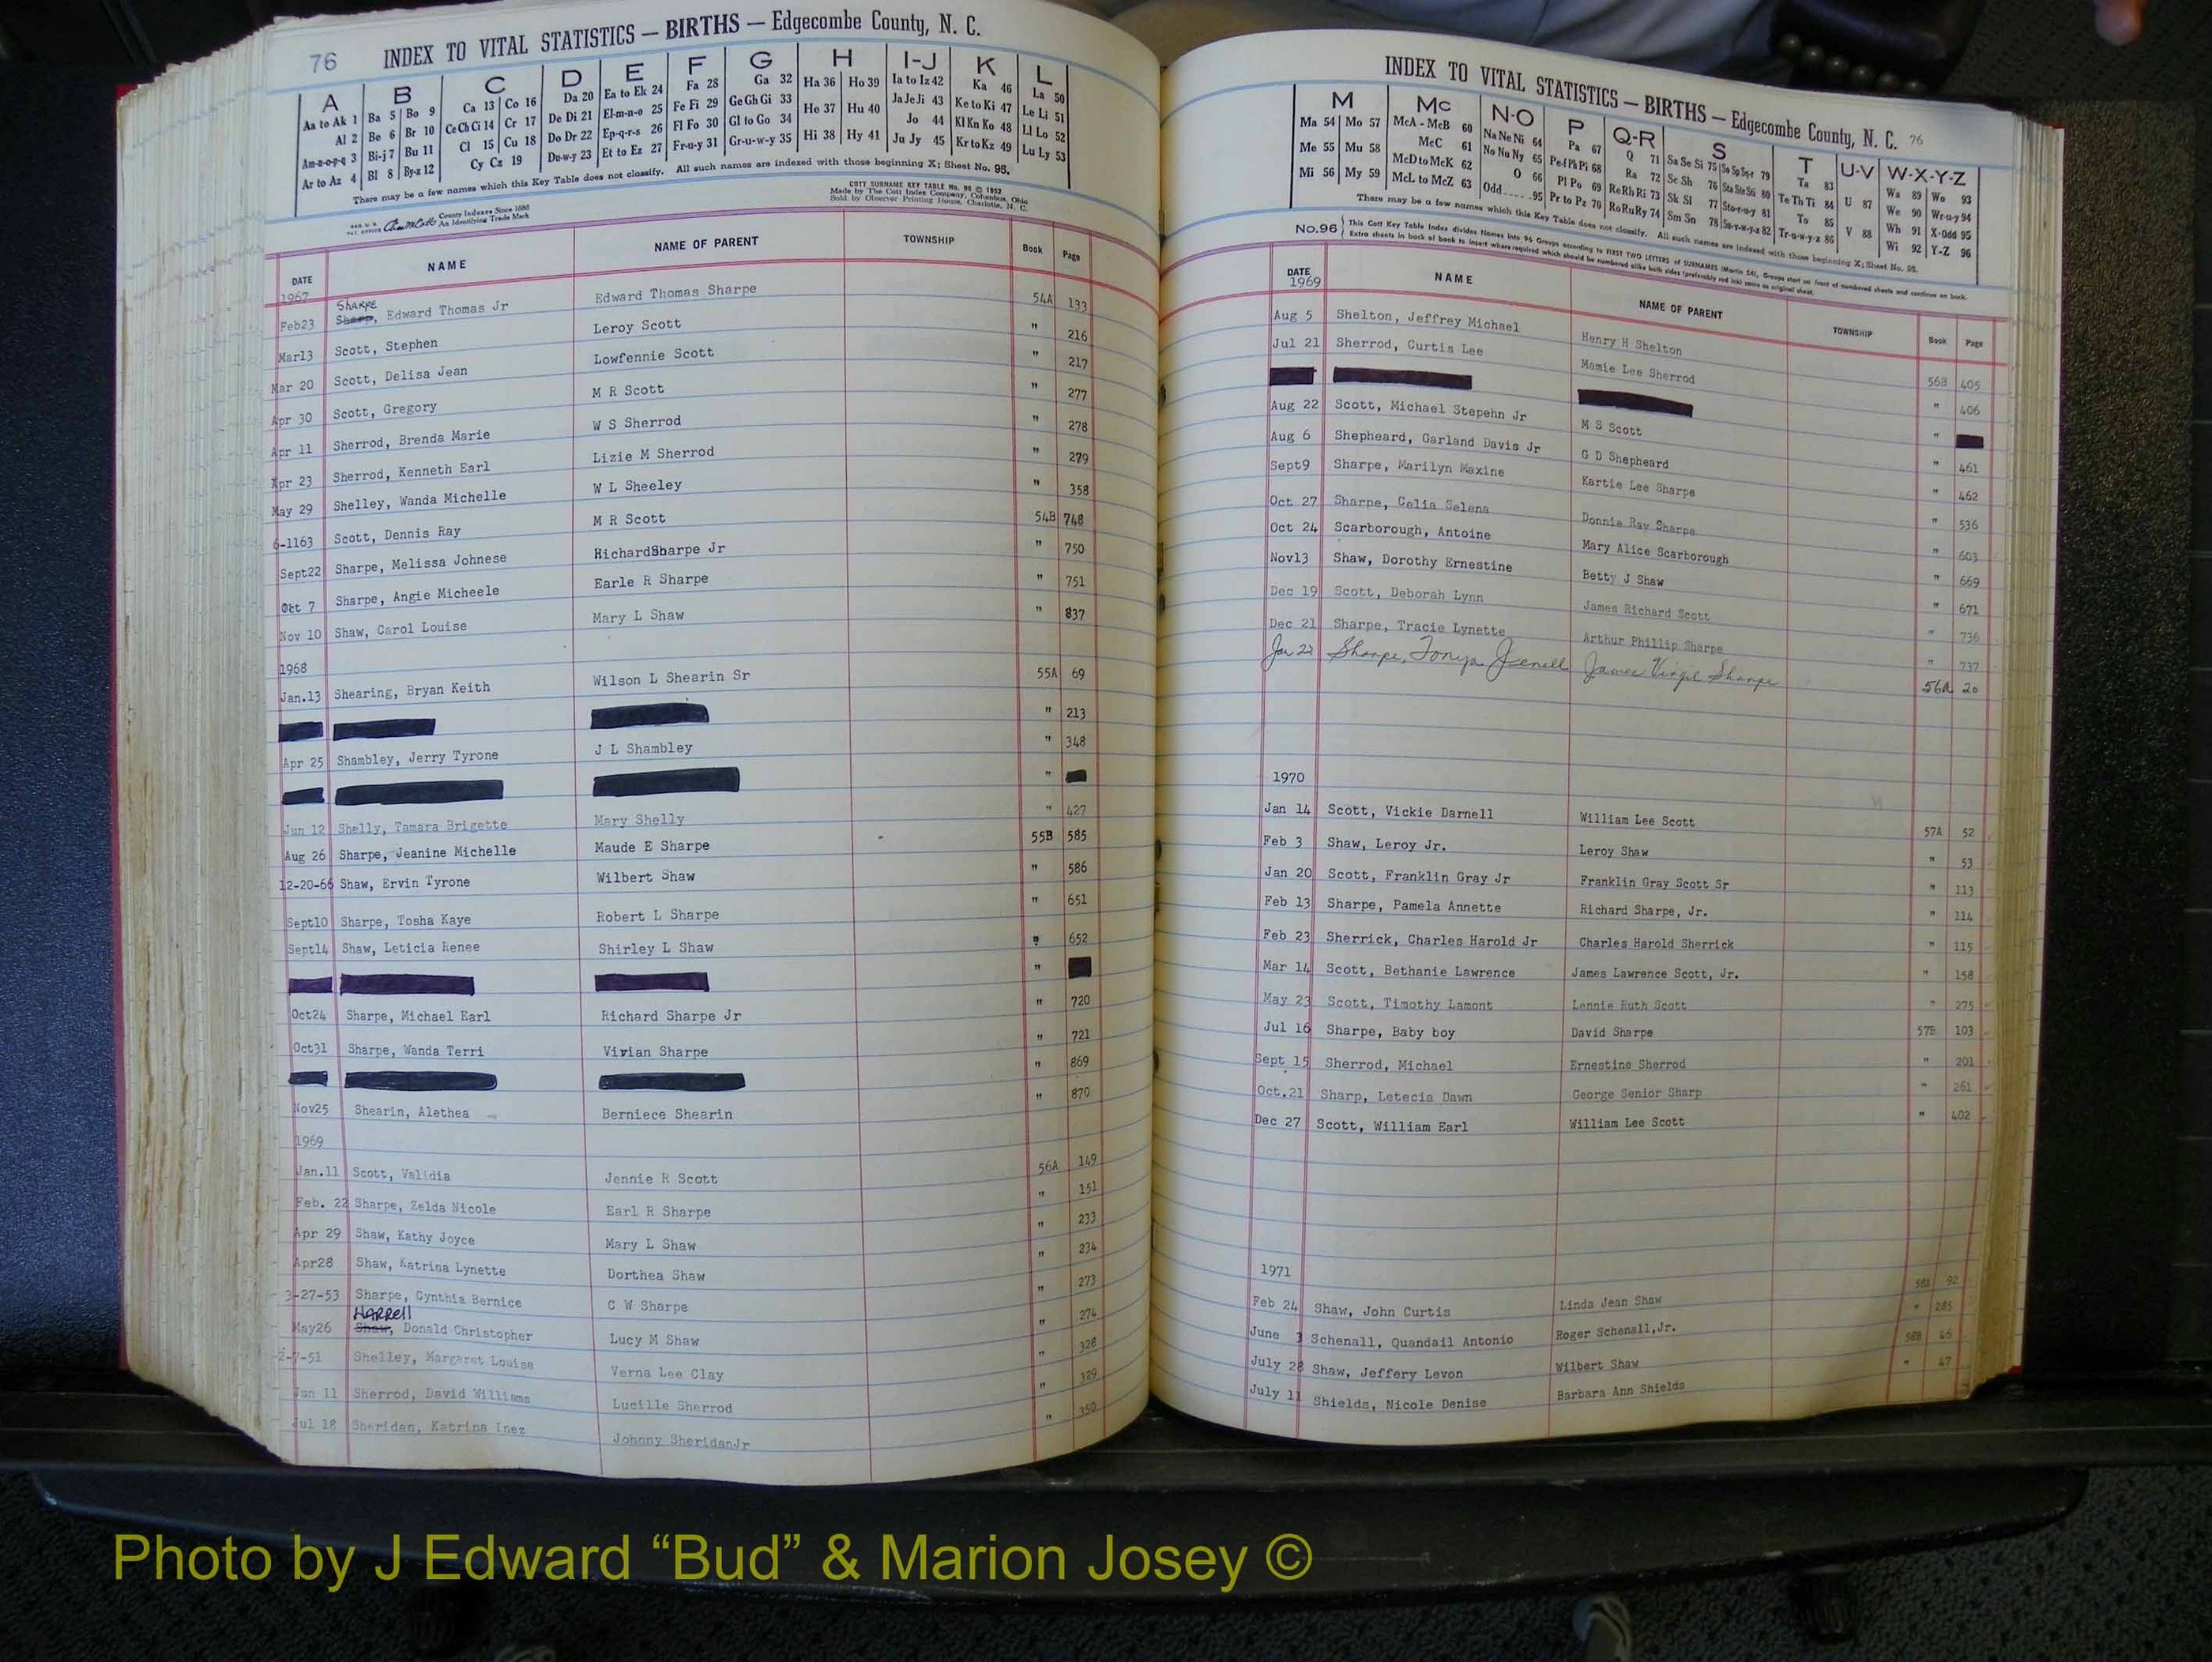 76 INDEX TO VITAL STATISTICS — BIRTHS — Edgecombe County, N. C.
A B C D E F G H I-J K L
Aa to Ak 1 Ba 5 Bo 9 Ca 13 Co 16 Da 20 Ea to Ek 24 Fa 28 Ga 32 Ha 36 Ho 39 Ia to Iz 42 Ka 46 La 50
Al 2 Be 6 Br 10 Ce Ch Ci 14 Cr 17 De Di 21 El-m-n-o 25 Fe Fi 29 Ge Gh Gi 33 He 37 Hu 40 Ja Je Ji 43 Ke to Ki 47 Le Li 51
Am-n-o-p-q 3 Bi-j 7 Bu 11 Cl 15 Cu 18 Do Dr 22 Ep-q-r-s 26 Fl Fo 30 Gl to Go 34 Hi 38 Hy 41 Jo 44 Kl Kn Ko 48 Ll Lo 52
Ar to Az 4 Bl 8 By-z 12 Cy Cz 19 Du-w-y 23 Et to Ez 27 Fr-u-y 31 Gr-u-w-y 35 Ju Jy 45 Kr to Kz 49 Lu Ly 53
There may be a few names which this Key Table does not classify. All such names are indexed with those beginning X; Sheet No. 95.
COTT SURNAME KEY TABLE No. 96 © 1952
Made by The Cott Index Company, Columbus, Ohio
Sold by Observer Printing House, Charlotte, N. C.
County Indexes Since 1888
An Identifying Trade Mark
DATE NAME NAME OF PARENT TOWNSHIP Book Page
1967
Sharpe
Feb23 Sharp, Edward Thomas Jr Edward Thomas Sharpe 54A 133
Mar13 Scott, Stephen Leroy Scott " 216
Mar 20 Scott, Delisa Jean Lowfennie Scott " 217
Apr 30 Scott, Gregory M R Scott " 277
Apr 11 Sherrod, Brenda Marie W S Sherrod " 278
Apr 23 Sherrod, Kenneth Earl Lizie M Sherrod " 279
May 29 Shelley, Wanda Michelle W L Sheeley " 358
6-1163 Scott, Dennis Ray M R Scott 54B 748
Sept22 Sharpe, Melissa Johnese RichardSharpe Jr " 750
Oct 7 Sharpe, Angie Micheele Earle R Sharpe " 751
Nov 10 Shaw, Carol Louise Mary L Shaw " 837
1968
Jan.13 Shearing, Bryan Keith Wilson L Shearin Sr 55A 69
" 213
Apr 25 Shambley, Jerry Tyrone J L Shambley " 348
"
Jun 12 Shelly, Tamara Brigette Mary Shelly " 427
Aug 26 Sharpe, Jeanine Michelle Maude E Sharpe 55B 585
12-20-66 Shaw, Ervin Tyrone Wilbert Shaw " 586
Sept10 Sharpe, Tosha Kaye Robert L Sharpe " 651
Sept14 Shaw, Leticia Renee Shirley L Shaw " 652
"
Oct24 Sharpe, Michael Earl Richard Sharpe Jr " 720
Oct31 Sharpe, Wanda Terri Vivian Sharpe " 721
" 869
Nov25 Shearin, Alethea Berniece Shearin " 870
1969
Jan.11 Scott, Validia Jennie R Scott 56A 149
Feb. 22 Sharpe, Zelda Nicole Earl R Sharpe " 151
Apr 29 Shaw, Kathy Joyce Mary L Shaw " 233
Apr28 Shaw, Katrina Lynette Dorthea Shaw " 234
3-27-53 Sharpe, Cynthia Bernice C W Sharpe " 273
HARRell
May26 Shaw, Donald Christopher Lucy M Shaw " 274
2-7-51 Shelley, Margaret Louise Verna Lee Clay " 328
Jun 11 Sherrod, David Williams Lucille Sherrod " 329
Jul 18 Sheridan, Katrina Inez Johnny SheridanJr " 350
INDEX TO VITAL STATISTICS — BIRTHS — Edgecombe County, N. C. 76
M Mc N-O P Q-R S T U-V W-X-Y-Z
Ma 54 Mo 57 McA - McB 60 Na Ne Ni 64 Pa 67 Q 71 Sa Se Si 75 So Sp Sq-r 79 Ta 83 U 87 Wa 89 Wo 93
Me 55 Mu 58 McC 61 No Nu Ny 65 Pe-f Ph Pi 68 Ra 72 Sc Sh 76 Sta Ste Sti 80 Te Th Ti 84 V 88 We 90 Wr-u-y 94
Mi 56 My 59 McD to McK 62 O 66 Pl Po 69 Re Rh Ri 73 Sk Sl 77 Sto-r-u-y 81 To 85 Wh 91 X-Odd 95
McL to McZ 63 Odd 95 Pr to Pz 70 Ro Ru Ry 74 Sm Sn 78 Su-v-w-y-z 82 Tr-u-w-y-z 86 Wi 92 Y-Z 96
There may be a few names which this Key Table does not classify. All such names are indexed with those beginning X; Sheet No. 95.
No.96 This Cott Key Table Index divides Names into 96 Groups according to FIRST TWO LETTERS of SURNAMES (Martin 54), Groups start on front of numbered sheets and continue on back.
Extra sheets in back of book to insert where required which should be numbered alike both sides (preferably red ink) same as original sheet.
DATE NAME NAME OF PARENT TOWNSHIP Book Page
1969
Aug 5 Shelton, Jeffrey Michael Henry H Shelton 56B 405
Jul 21 Sherrod, Curtis Lee Mamie Lee Sherrod " 406
"
Aug 22 Scott, Michael Stepehn Jr M S Scott " 461
Aug 6 Shepheard, Garland Davis Jr G D Shepheard " 462
Sept9 Sharpe, Marilyn Maxine Kartie Lee Sharpe " 536
Oct 27 Sharpe, Celia Selena Donnie Ray Sharpe " 603
Oct 24 Scarborough, Antoine Mary Alice Scarborough " 669
Nov13 Shaw, Dorothy Ernestine Betty J Shaw " 671
Dec 19 Scott, Deborah Lynn James Richard Scott " 736
Dec 21 Sharpe, Tracie Lynette Arthur Phillip Sharpe " 737
Jan 22 Sharpe, Tonya Jenell James Virgil Sharpe 56A 20
1970
Jan 14 Scott, Vickie Darnell William Lee Scott 57A 52
Feb 3 Shaw, Leroy Jr. Leroy Shaw " 53
Jan 20 Scott, Franklin Gray Jr Franklin Gray Scott Sr " 113
Feb 13 Sharpe, Pamela Annette Richard Sharpe, Jr. " 114
Feb 23 Sherrick, Charles Harold Jr Charles Harold Sherrick " 115
Mar 14 Scott, Bethanie Lawrence James Lawrence Scott, Jr. " 158
May 23 Scott, Timothy Lamont Lennie Ruth Scott " 275
Jul 16 Sharpe, Baby boy David Sharpe 57B 103
Sept 15 Sherrod, Michael Ernestine Sherrod " 201
Oct.21 Sharp, Letecia Dawn George Senior Sharp " 261
Dec 27 Scott, William Earl William Lee Scott " 402
1971
Feb 24 Shaw, John Curtis Linda Jean Shaw 58A 92
June 3 Schenall, Quandail Antonio Roger Schenall,Jr. " 285
July 28 Shaw, Jeffery Levon Wilbert Shaw 58B 46
July 11 Shields, Nicole Denise Barbara Ann Shields " 47
Photo by J Edward “Bud” & Marion Josey ©